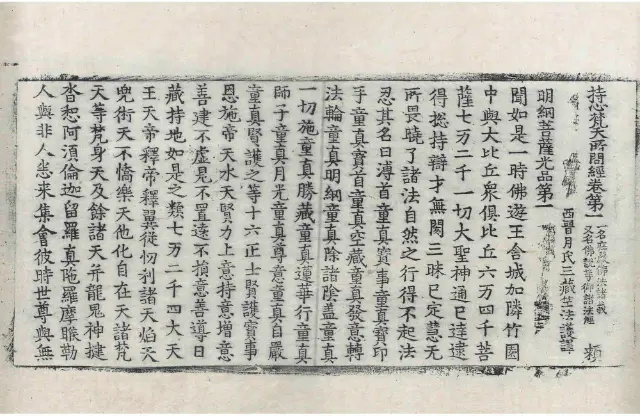 持心梵天所問經卷第一 一名莊嚴佛法諸義 又名佛說等御諸法經 頼
西晉月氏三藏竺法護譯
明網菩薩光品第一
聞如是一時佛遊王舍城加隣竹園
中與大比丘衆俱比丘六万四千菩
薩七万二千一切大聖神通已達逮
得揔持辯才無閡三昧已定慧无
所畏曉了諸法自然之行得不起法
忍其名曰溥首童真寶事童真寶印
手童真寶首童真空藏童真發意轉
法輪童真明網童真除諸陰蓋童真
一切施童真勝藏童真蓮華行童真
師子童真月光童真尊意童真自嚴
童真賢護之等十六正士賢護寶事
恩施帝天水天賢力上意持意增意
善建不虛見不置遠不損意善導日
藏持地如是之類七万二千四大天
王天帝釋帝釋翼從忉利諸天焰天
兜術天不憍樂天他化自在天諸梵
天等梵身天及餘諸天并龍鬼神揵
沓惒阿須倫迦留羅真陁羅摩睺勒
人與非人悉來集會彼時世尊與無